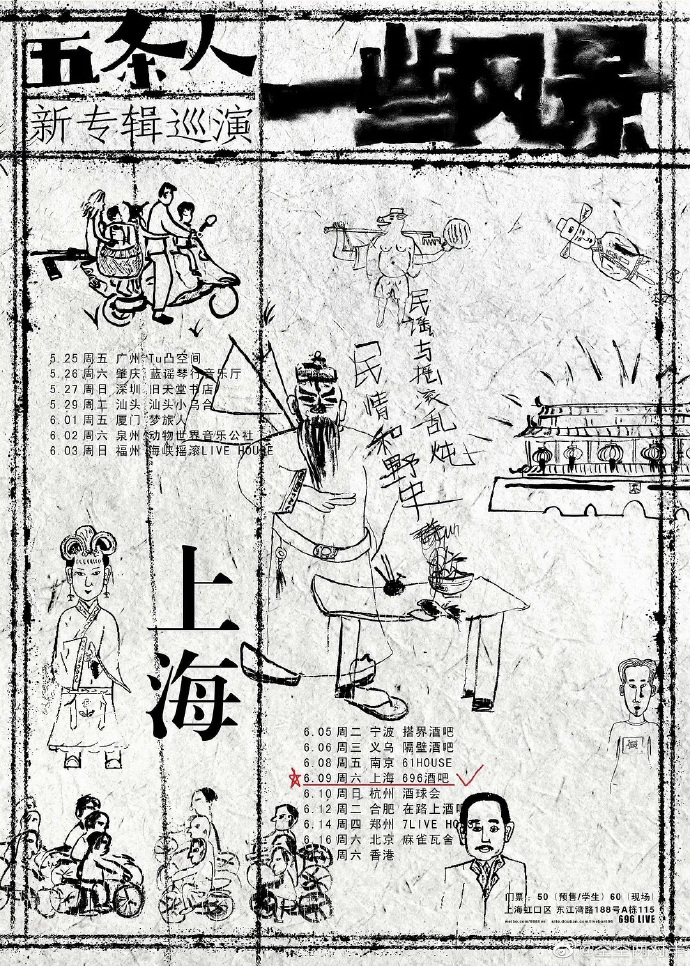 五条人
一些风景
新专辑巡演
民谣与摇滚乱炖
民情和野史
5.25 周五 广州 Tu凸空间
5.26 周六 肇庆 蓝谣琴行音乐厅
5.27 周日 深圳 旧天堂书店
5.29 周二 汕头 汕头小乌合
6.01 周五 厦门 梦旅人
6.02 周六 泉州 动物世界音乐公社
6.03 周日 福州 海峡摇滚LIVE HOUSE
上海
6.05 周二 宁波 搭界酒吧
6.06 周三 义乌 隔壁酒吧
6.08 周五 南京 61HOUSE
6.09 周六 上海 696酒吧
6.10 周日 杭州 酒球会
6.12 周二 合肥 在路上酒吧
6.14 周四 郑州 7LIVE HO
6.16 周六 北京 麻雀瓦舍
周六 香港
门票: 50 (预售/学生) 60 (现场)
上海虹口区 东江湾路188号A栋115
696 LIVE